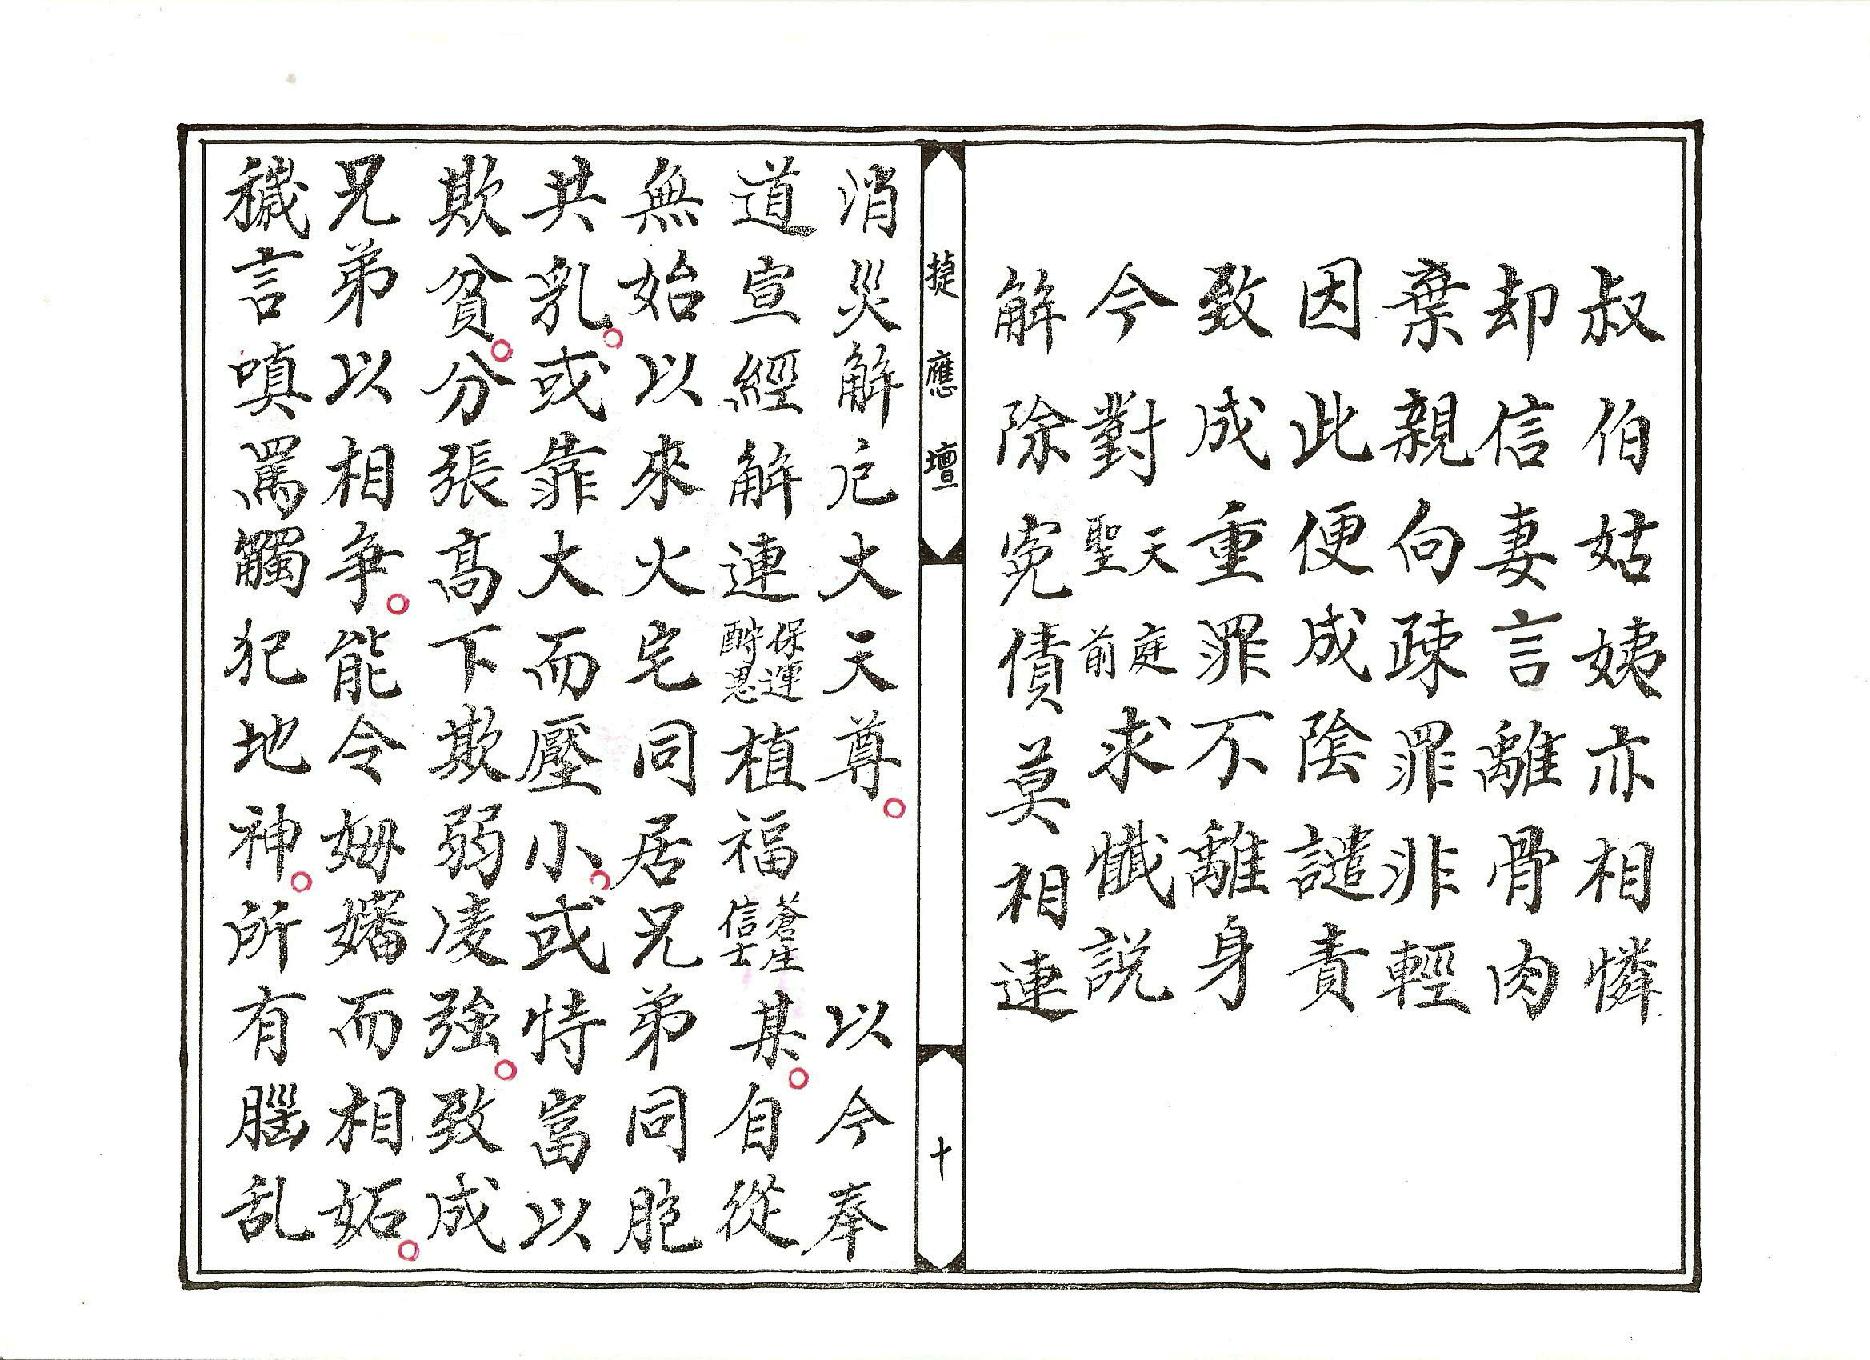 叔伯姑姨亦相憐
却信妻言離骨肉
棄親向疎罪非輕
因此便成陰譴責
致成重罪不離身
今對天庭聖前求懺說
解除寃債莫相連
捷應壇
十
消災解厄大天尊。以今奉
道宣經解連保運酧恩植福蒼生信士某。自從
無始以來火宅同居兄弟同胞
共乳。或靠大而壓小。或恃富以
欺貧。分張高下欺弱凌強。致成
兄弟以相争。能令姆嬸而相妬。
穢言嗔罵觸犯地神。所有腦乱